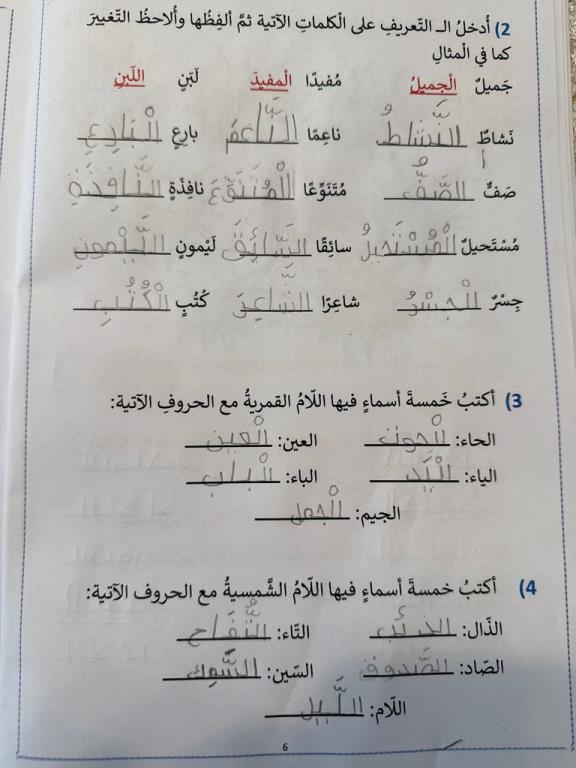 2) أُدخلُ الـ التّعريفِ على الْكلماتِ الآتية ثمَّ ألفِظُها وأُلاحظُ التّغييرَ
كما في الْمثالِ
جَميلٌ الْجميلُ مُفيدًا الْمفيدَ لَبَنٍ اللّبنِ
نَشاطٌ النَّشاطُ ناعِمًا النَّاعِمَ بارِعٍ الْبارِعِ
صَفٌّ الصَّفُّ مُتَنَوِّعًا الْمُتَنَوِّعَ نافِذَةٍ النَّافِذَةِ
مُسْتَحيلٌ الْمُسْتَحيلُ سائِقًا السَّائِقَ لَيْمونٍ اللَّيْمونِ
جِسْرٌ الْجِسْرُ شاعِرًا الشَّاعِرَ كُتُبٍ الْكُتُبِ
3) أكتبُ خَمسةَ أسماءٍ فيها اللّامُ القمريةُ مع الحروفِ الآتية:
الحاء: الْحوت العين: الْعين
الياء: الْيَد الباء: الْباب
الجيم: الْجمل
4) أكتبُ خمسةَ أسماءٍ فيها اللّامُ الشَّمسيةُ مع الحروف الآتية:
الذّال: الذئب التّاء: التُّفاح
الصّاد: الصَّندوق السّين: السَّمك
اللّام: اللَّيل
6